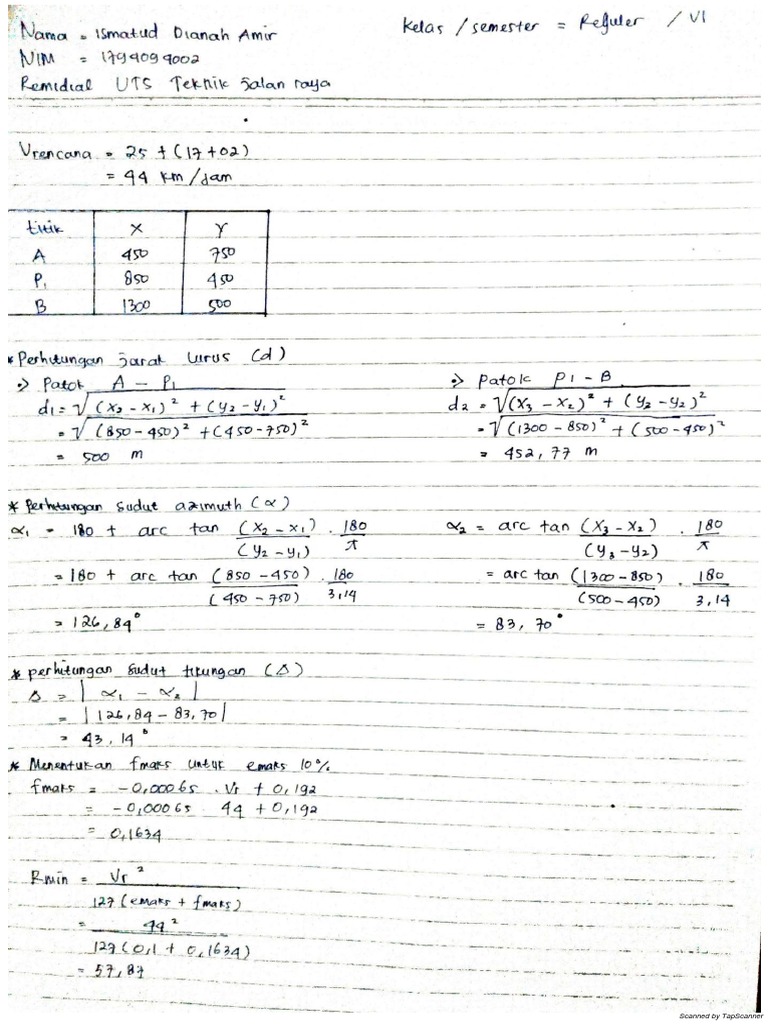 Nama = Ismatud Dianah Amir
Kelas / semester = Reguler / VI
NIM = 1794094002
Remidial UTS Teknik Jalan raya
Vrencana = 25 + (17+02)
= 44 km/jam
titik X Y
A 450 750
P1 850 450
B 1300 500
* Perhitungan Jarak Lurus (d)
:> Patok A - P1
d1 = √(x2 - x1)² + (y2 - y1)²
= √(850 - 450)² + (450 - 750)²
= 500 m
:> Patok P1 - B
d2 = √(x3 - x2)² + (y3 - y2)²
= √(1300 - 850)² + (500 - 450)²
= 452,77 m
* Perhitungan sudut azimuth (α)
α1 = 180 + arc tan (x2 - x1) / (y2 - y1) . 180 / π
= 180 + arc tan (850 - 450) / (450 - 750) . 180 / 3,14
= 126,84°
α2 = arc tan (x3 - x2) / (y3 - y2) . 180 / π
= arc tan (1300 - 850) / (500 - 450) . 180 / 3,14
= 83,70°
* perhitungan sudut tikungan (Δ)
Δ = | α1 - α2 |
= | 126,84 - 83,70 |
= 43,14°
* Menentukan fmaks untuk emaks 10%
fmaks = -0,00065 . Vr + 0,192
= -0,00065 44 + 0,192
= 0,1634
Rmin = Vr² / 127 (emaks + fmaks)
= 44² / 127 (0,1 + 0,1634)
= 57,87
Scanned by TapScanner